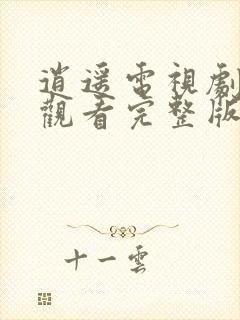 逍遥電視劇
觀看完整版
十一雲